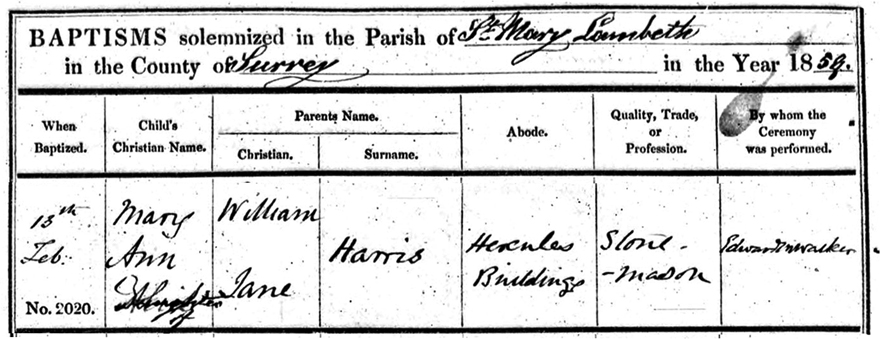 BAPTISMS solemnized in the Parish of St. Mary Lambeth
in the County of Surrey in the Year 1859.
When
Baptized.
Child's
Christian Name.
Parents Name.
Christian.
Surname.
Abode.
Quality, Trade,
or
Profession.
By whom the
Ceremony
was performed.
13th
Feb.
No. 2020.
Mary
Ann
Daughter
of
William
Jane
Harris
Hercules
Buildings
Stone-
-mason
Walker